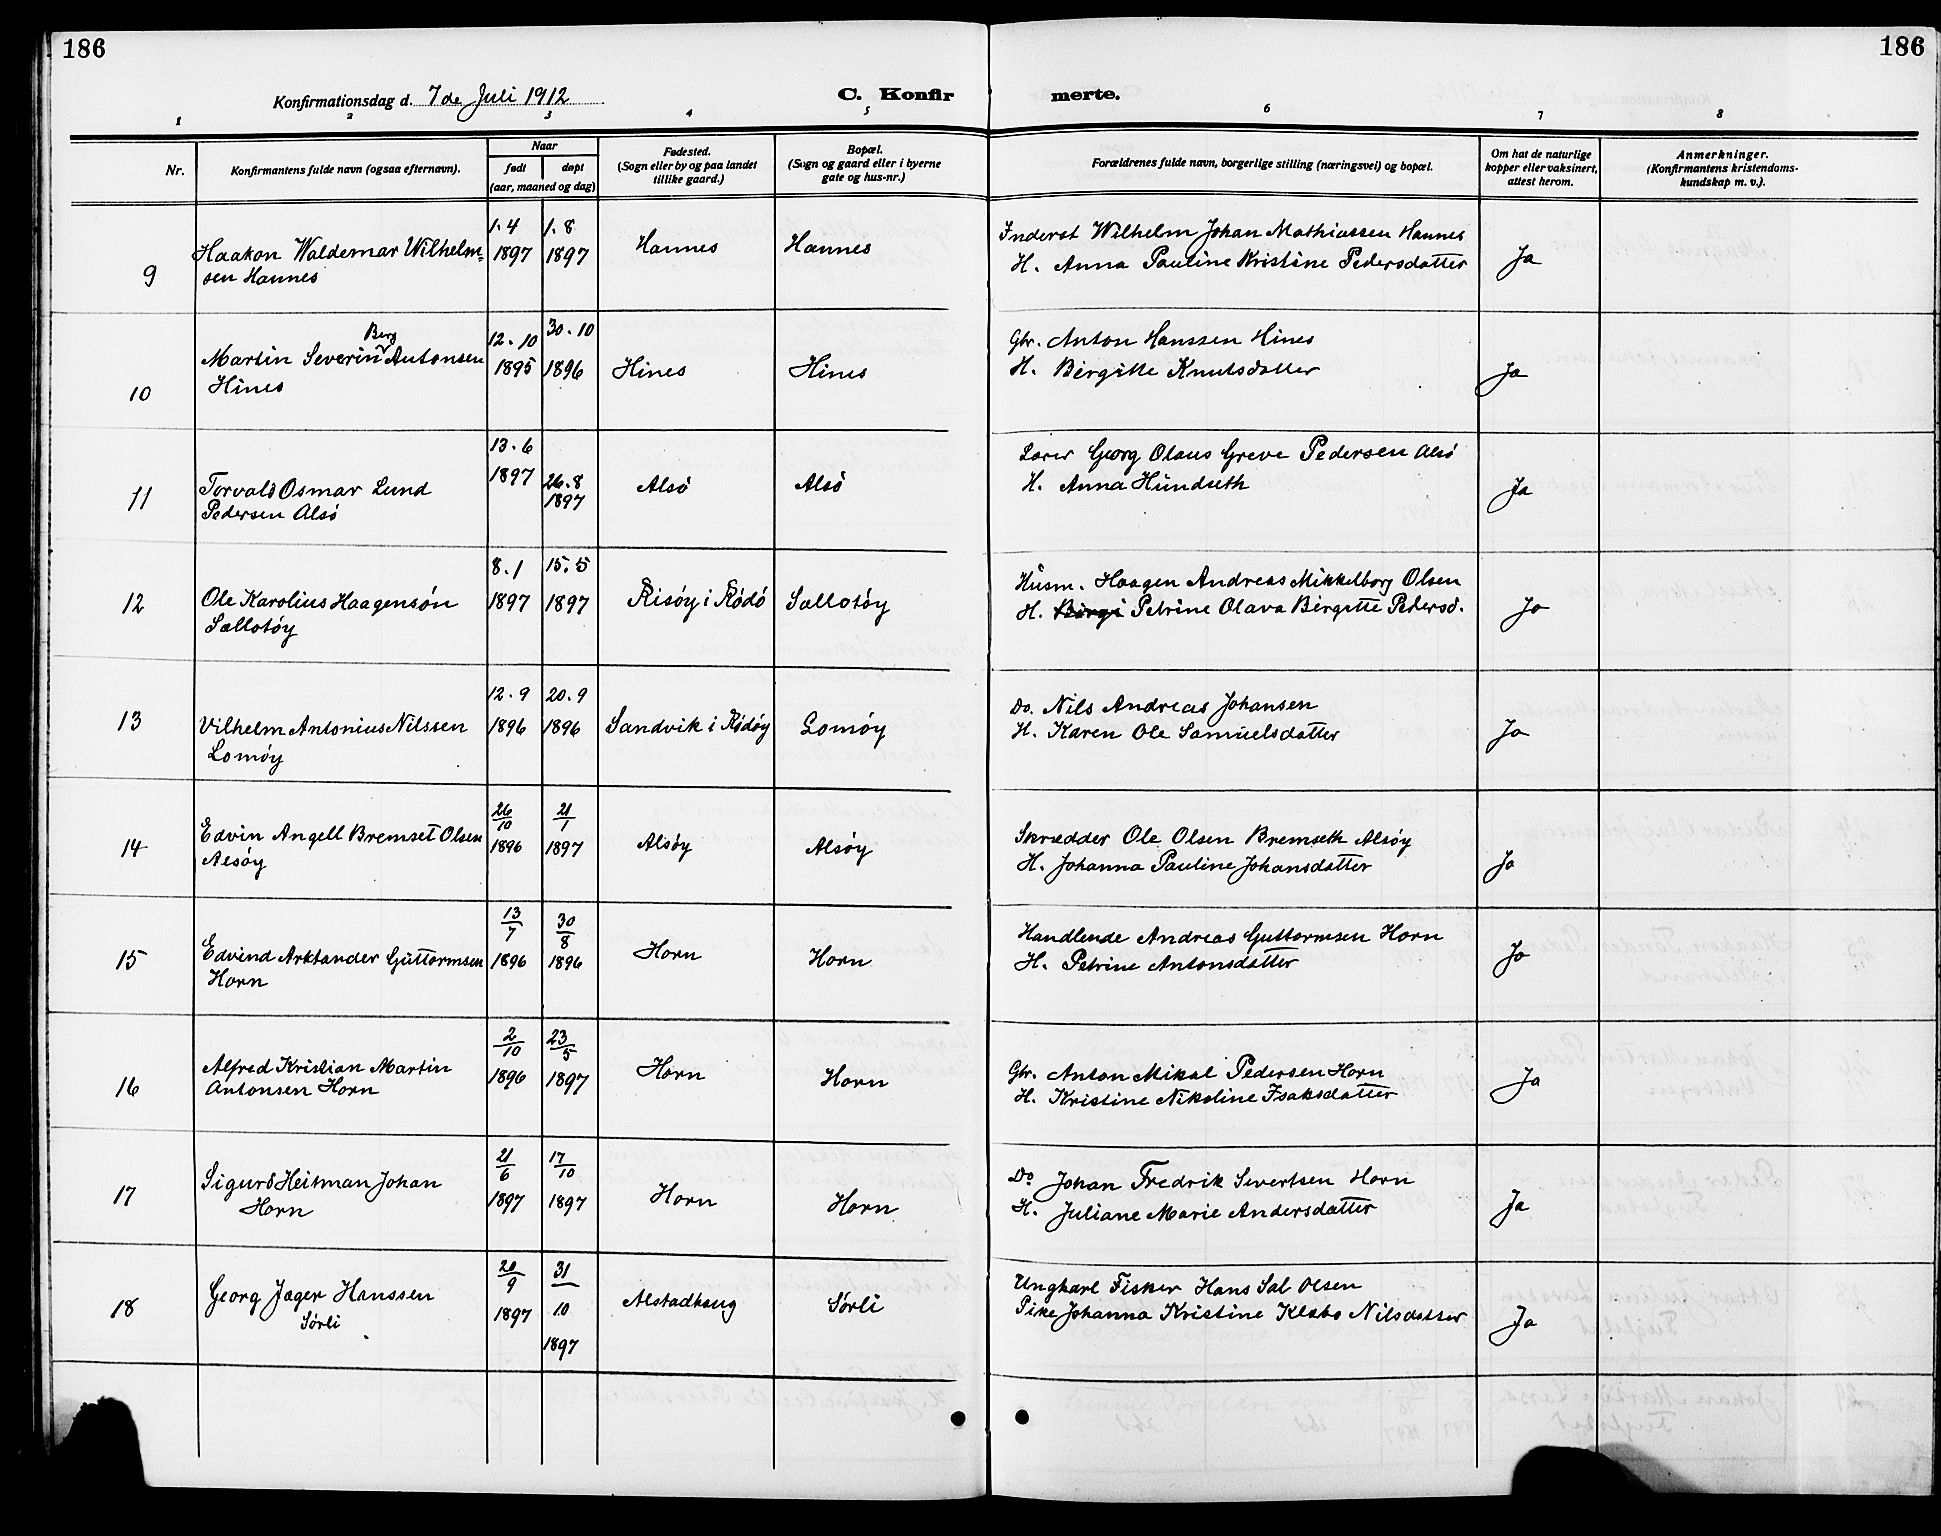 186
186
Konfirmationsdag d. 7de Juli 1912
C. Konfir
merte.
1 2 3 4 5 6 7 8
Nr.
Konfirmantens fulde navn (ogsaa efternavn).
Naar
født døpt
(aar, maaned og dag)
Fødested.
(Sogn eller by og paa landet
tillike gaard.)
Bopæl.
(Sogn og gaard eller i byerne
gate og hus-nr.)
Forældrenes fulde navn, borgerlige stilling (næringsvei) og bopæl.
Om hat de naturlige
kopper eller vaksinert,
attest herom.
Anmerkninger.
(Konfirmantens kristendoms-
kundskap m. v.).
9
Haakon Waldemar Wilhelm-
sen Hannes
1.4
1897
1.8
1897
Hannes
Hannes
Inderst Wilhelm Johan Mathiassen Hannes
H. Anna Pauline Kristine Pedersdatter
Ja
10
Berg
Martin Severin Antonsen
Hines
12.10
1895
30.10
1896
Hines
Hines
Gbr. Anton Hanssen Hines
H. Birgitte Knutsdatter
Ja
11
Torvald Osmar Lund
Pedersen Alsö
13.6
1897
26.8
1897
Alsö
Alsö
Lærer Georg Olaus Greve Pedersen Alsö
H. Anna Hundseth
Ja
12
Ole Karolius Haagensön
Sællotöy
8.1
1897
15.5
1897
Risöy i Rödö
Sællotöy
Husm. Haagen Andreas Mikkelborg Olsen
H. Birgi Petrine Olava Birgitte Pedersd.
Ja
13
Vilhelm Antonius Nilssen
Lomöy
12.9
1896
20.9
1896
Sandvik i Rödöy
Lomöy
Do. Nils Andreas Johansen
H. Karen Ole Samuelsdatter
Ja
14
Edvin Angell Bremset Olsen
Alsöy
26/10
1896
21/1
1897
Alsöy
Alsöy
Skrædder Ole Olsen Bremseth Alsöy
H. Johanna Pauline Johansdatter
Ja
15
Edvind Arktander Guttormsen
Horn
13/7
1896
30/8
1896
Horn
Horn
Handlende Andreas Guttormsen Horn
H. Petrine Antonsdatter
Ja
16
Alfred Kristian Martin
Antonsen Horn
2/10
1896
23/5
1897
Horn
Horn
Gbr. Anton Mikal Pedersen Horn
H. Kristine Nikoline Isaksdatter
Ja
17
Sigurd Heitman Johan
Horn
21/6
1897
17/10
1897
Horn
Horn
Do Johan Fredrik Sivertsen Horn
H. Juliane Marie Andersdatter
Ja
18
Georg Jæger Hanssen
Sörli
20/9
1897
31/10
1897
Alstadhaug
Sörli
Ungkarl Fisker Hans Sal Olsen
Pike Johanna Kristine Klæbo Nilsdatter
Ja